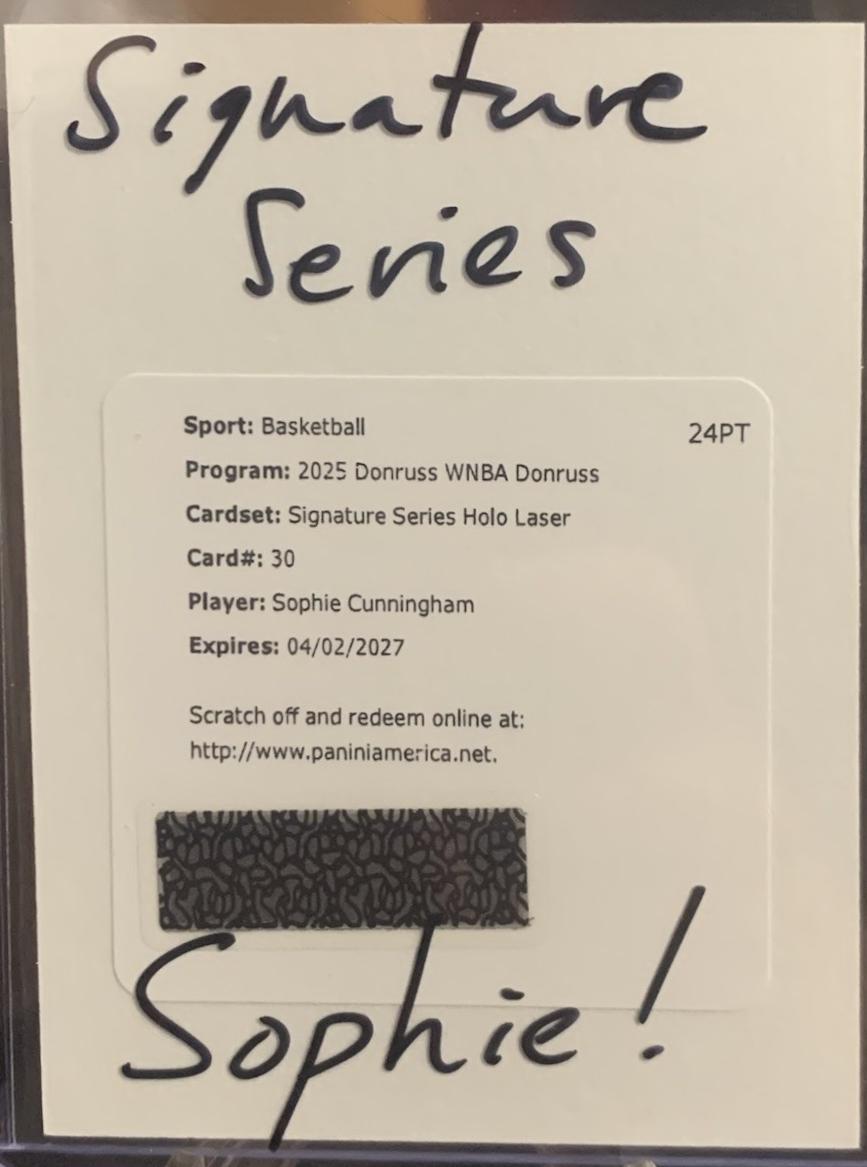 Signature
Series
Sport: Basketball 24PT
Program: 2025 Donruss WNBA Donruss
Cardset: Signature Series Holo Laser
Card#: 30
Player: Sophie Cunningham
Expires: 04/02/2027
Scratch off and redeem online at:
http://www.paniniamerica.net.
Sophie!